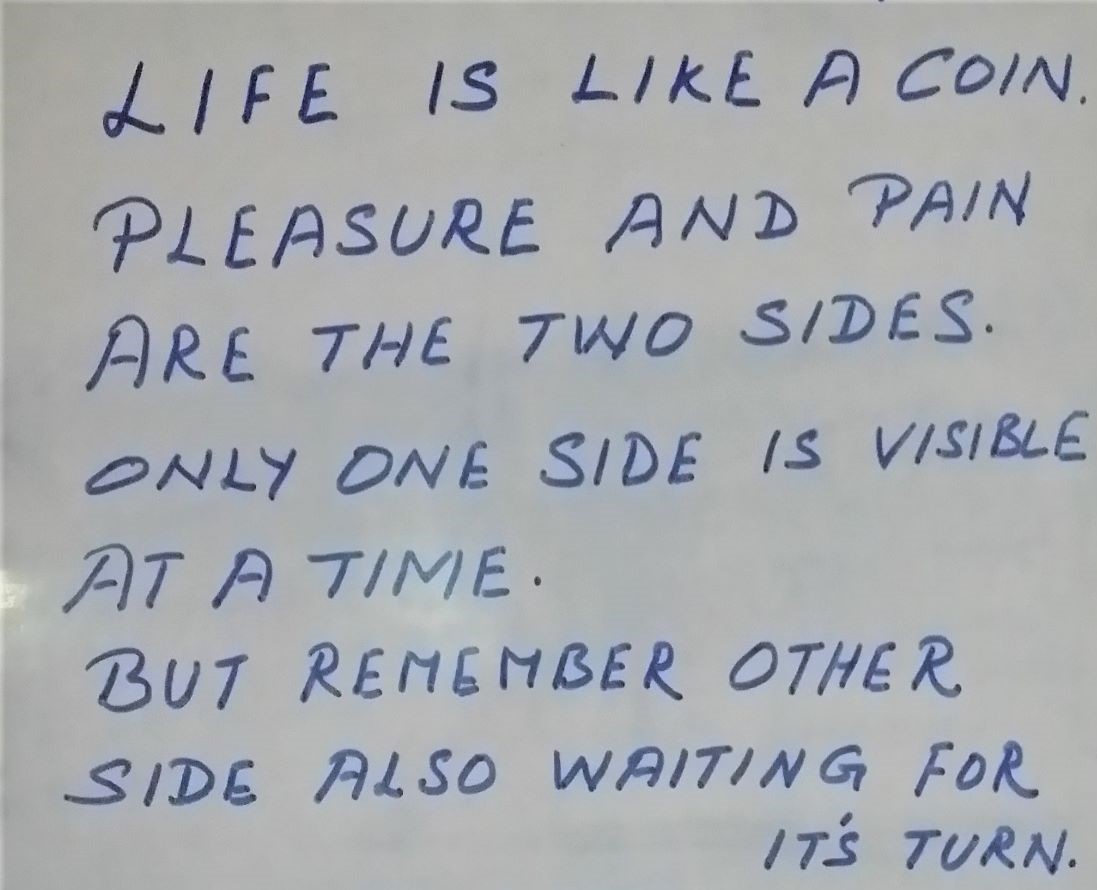 LIFE IS LIKE A COIN.
PLEASURE AND PAIN
ARE THE TWO SIDES.
ONLY ONE SIDE IS VISIBLE
AT A TIME.
BUT REMEMBER OTHER
SIDE ALSO WAITING FOR
IT'S TURN.